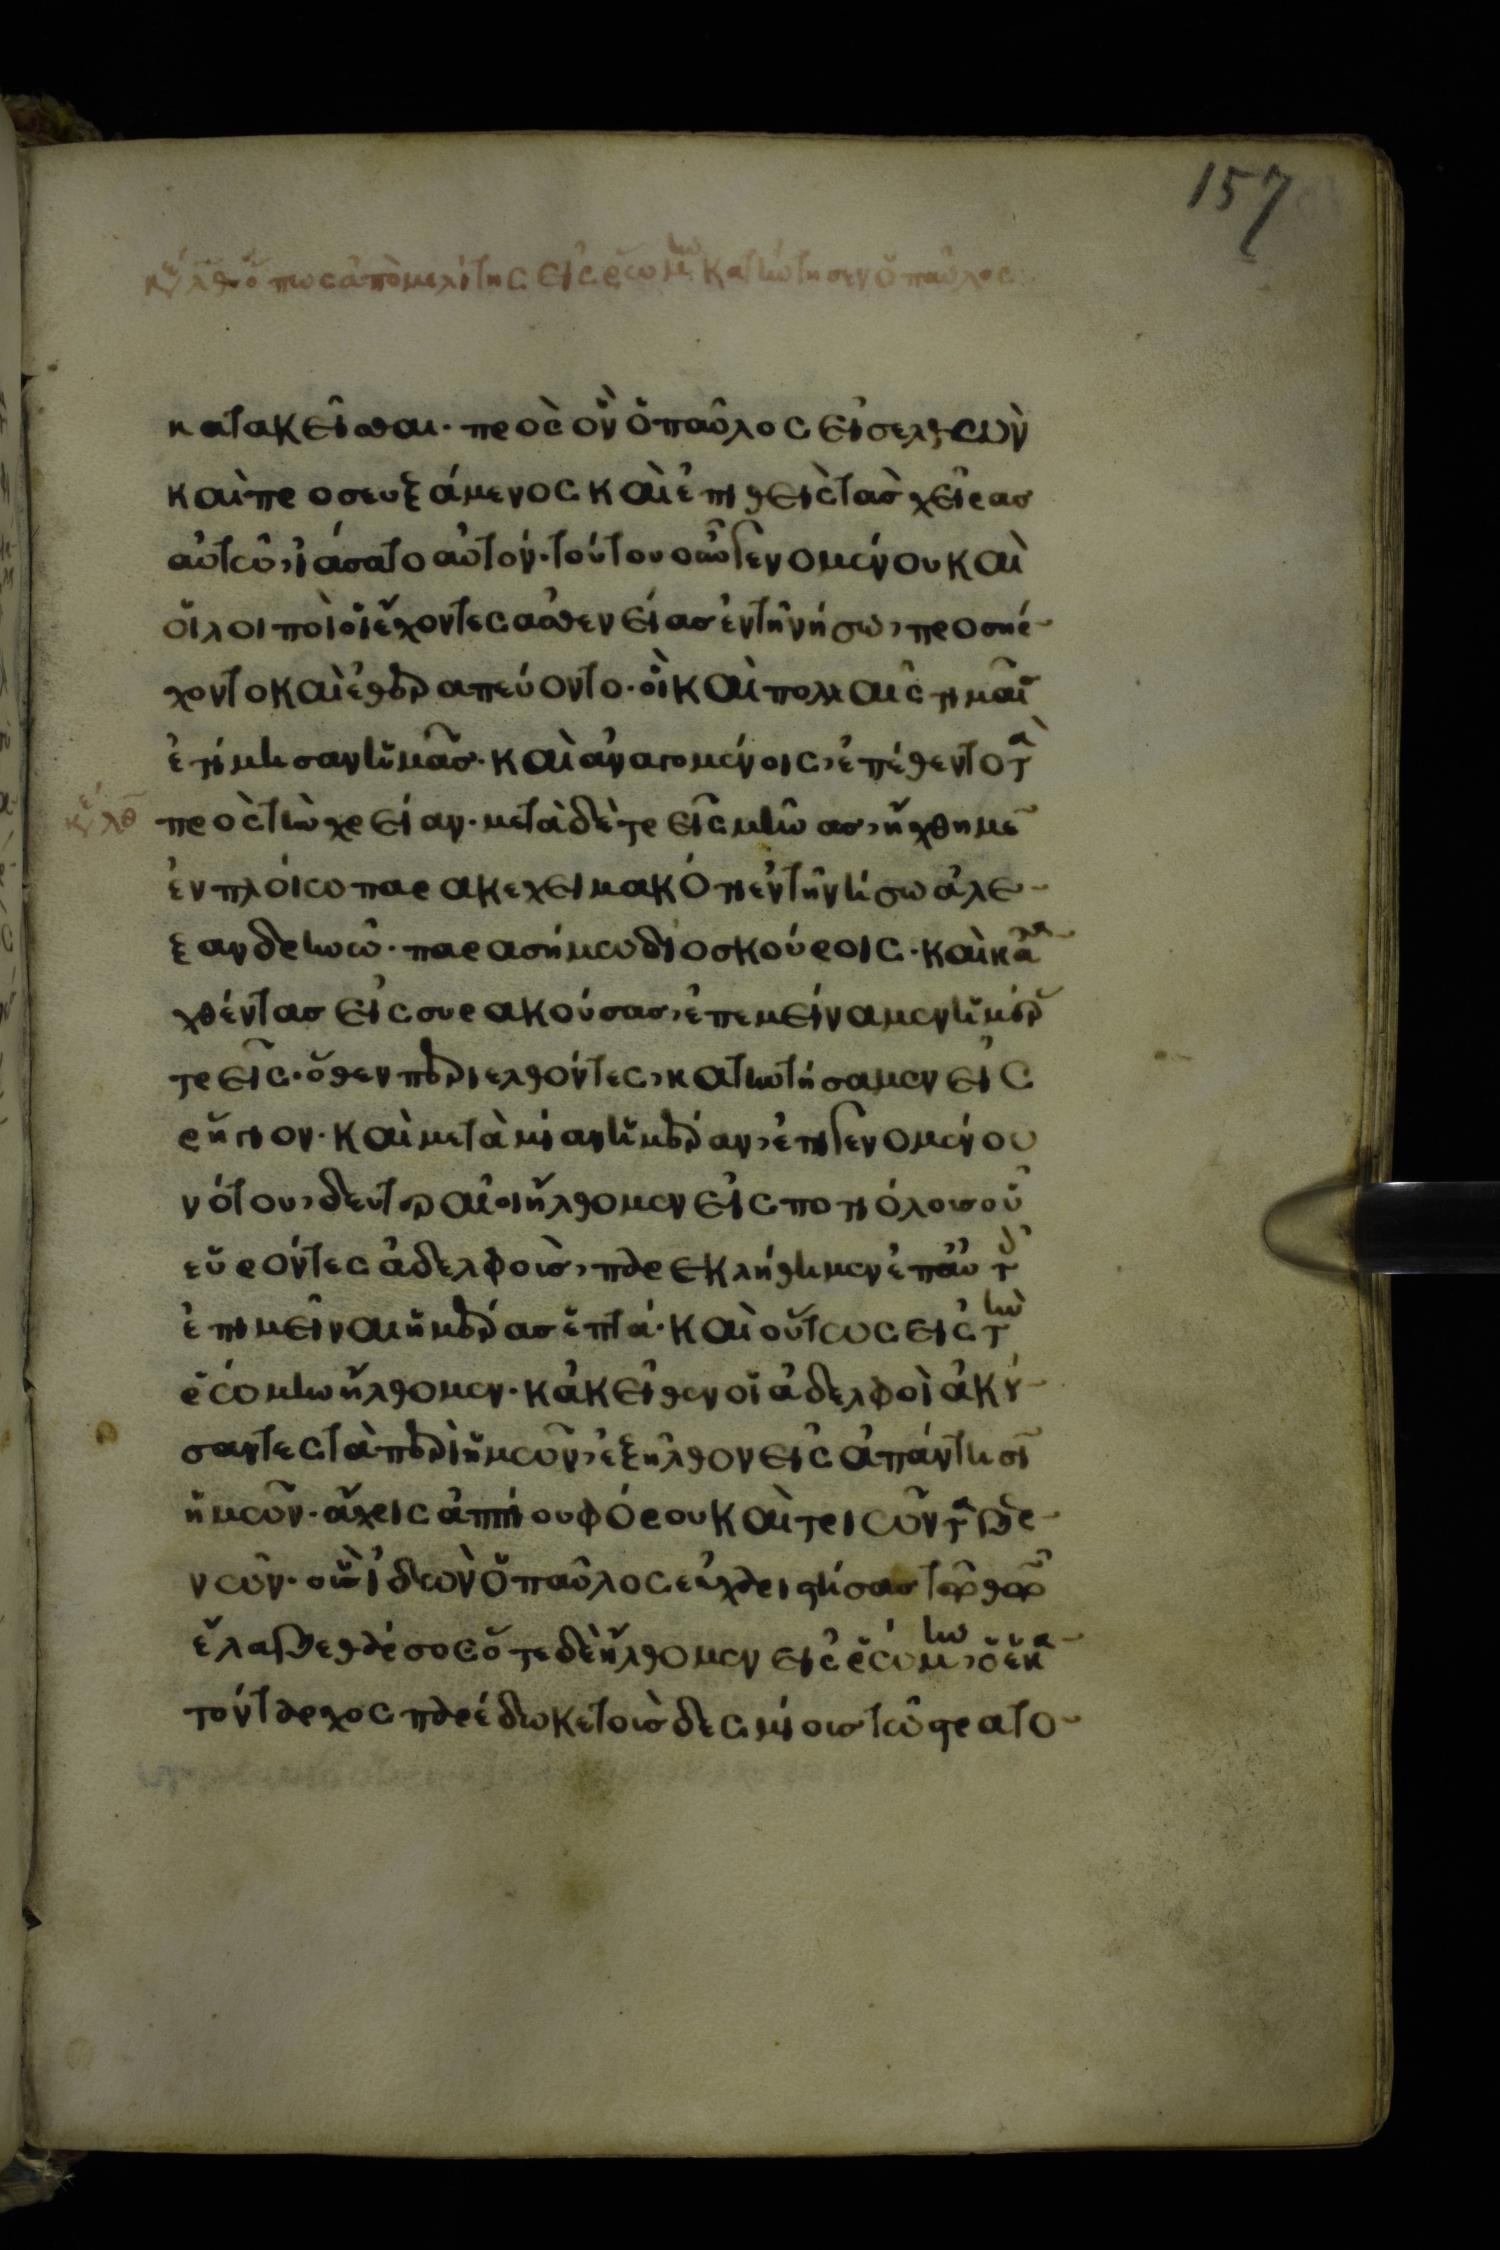 157
κε λθ ὅπως ἀπὸ μελίτης εἰς ῥώμην κατήντησεν ὁ παῦλος
κατακεῖσθαι· πρὸς ὃν ὁ παῦλος εἰσελθὼν
καὶ προσευξάμενος καὶ ἐπιθεὶς τὰς χεῖρας
αὐτῶ, ἰάσατο αὐτόν· τούτου οὖν γενομένου καὶ
οἱ λοιποὶ οἱ ἔχοντες ἀσθενείας ἐν τῆ νήσω, προσήρ
χοντο καὶ ἐθεραπεύοντο· οἳ καὶ πολλαῖς τιμαῖς
ἐτίμησαν ἡμᾶς· καὶ ἀναγομένοις, ἐπέθεντο τὰ
κε λθ πρὸς τὴν χρείαν· μετὰ δὲ τρεῖς μῆνας, ἤχθημεν
ἐν πλοίω παρακεχειμακότι ἐν τῆ νήσω ἀλε
ξανδρηνῶ· παρασήμω διοσκούροις· καὶ κατα
χθέντας εἰς συρακούσας, ἐπεμείναμεν ἡμέρας
τρεῖς· ὅθεν περιελθόντες, κατηντήσαμεν εἰς
ῥήγιον· καὶ μετὰ μίαν ἡμέραν, ἐπιγενομένου
νότου, δευτεραῖοι ἤλθομεν εἰς ποτιόλους οὗ
εὑρόντες ἀδελφοὺς, παρεκλήθημεν ἐπ αὐτοῖς
ἐπιμεῖναι ἡμέρας ἑπτά· καὶ οὕτως εἰς τὴν
ῥώμην ἤλθομεν· κἀκεῖθεν οἱ ἀδελφοὶ ἀκού
σαντες τὰ περὶ ἡμῶν, ἐξῆλθον εἰς ἀπάντησιν
ἡμῶν· ἄχρις ἀππίου φόρου καὶ τριῶν ταβερ
νῶν· οὓς ἰδὼν ὁ παῦλος εὐχαριστήσας τῶ θεῶ
ἔλαβε θάρσος ὅτε δὲ ἤλθομεν εἰς ῥώμην, ὁ ἑκα
τόνταρχος παρέδωκε τοὺς δεσμίους τῶ στρατο